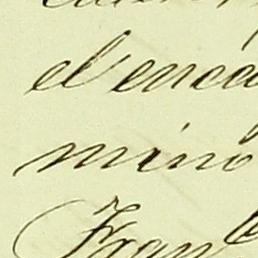 el enca
mino
Fran